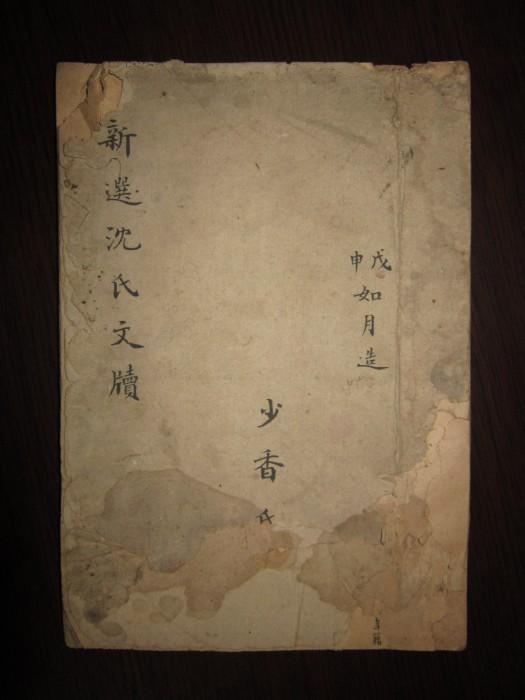 戊申
如月造
少香氏
新選沈氏文牘